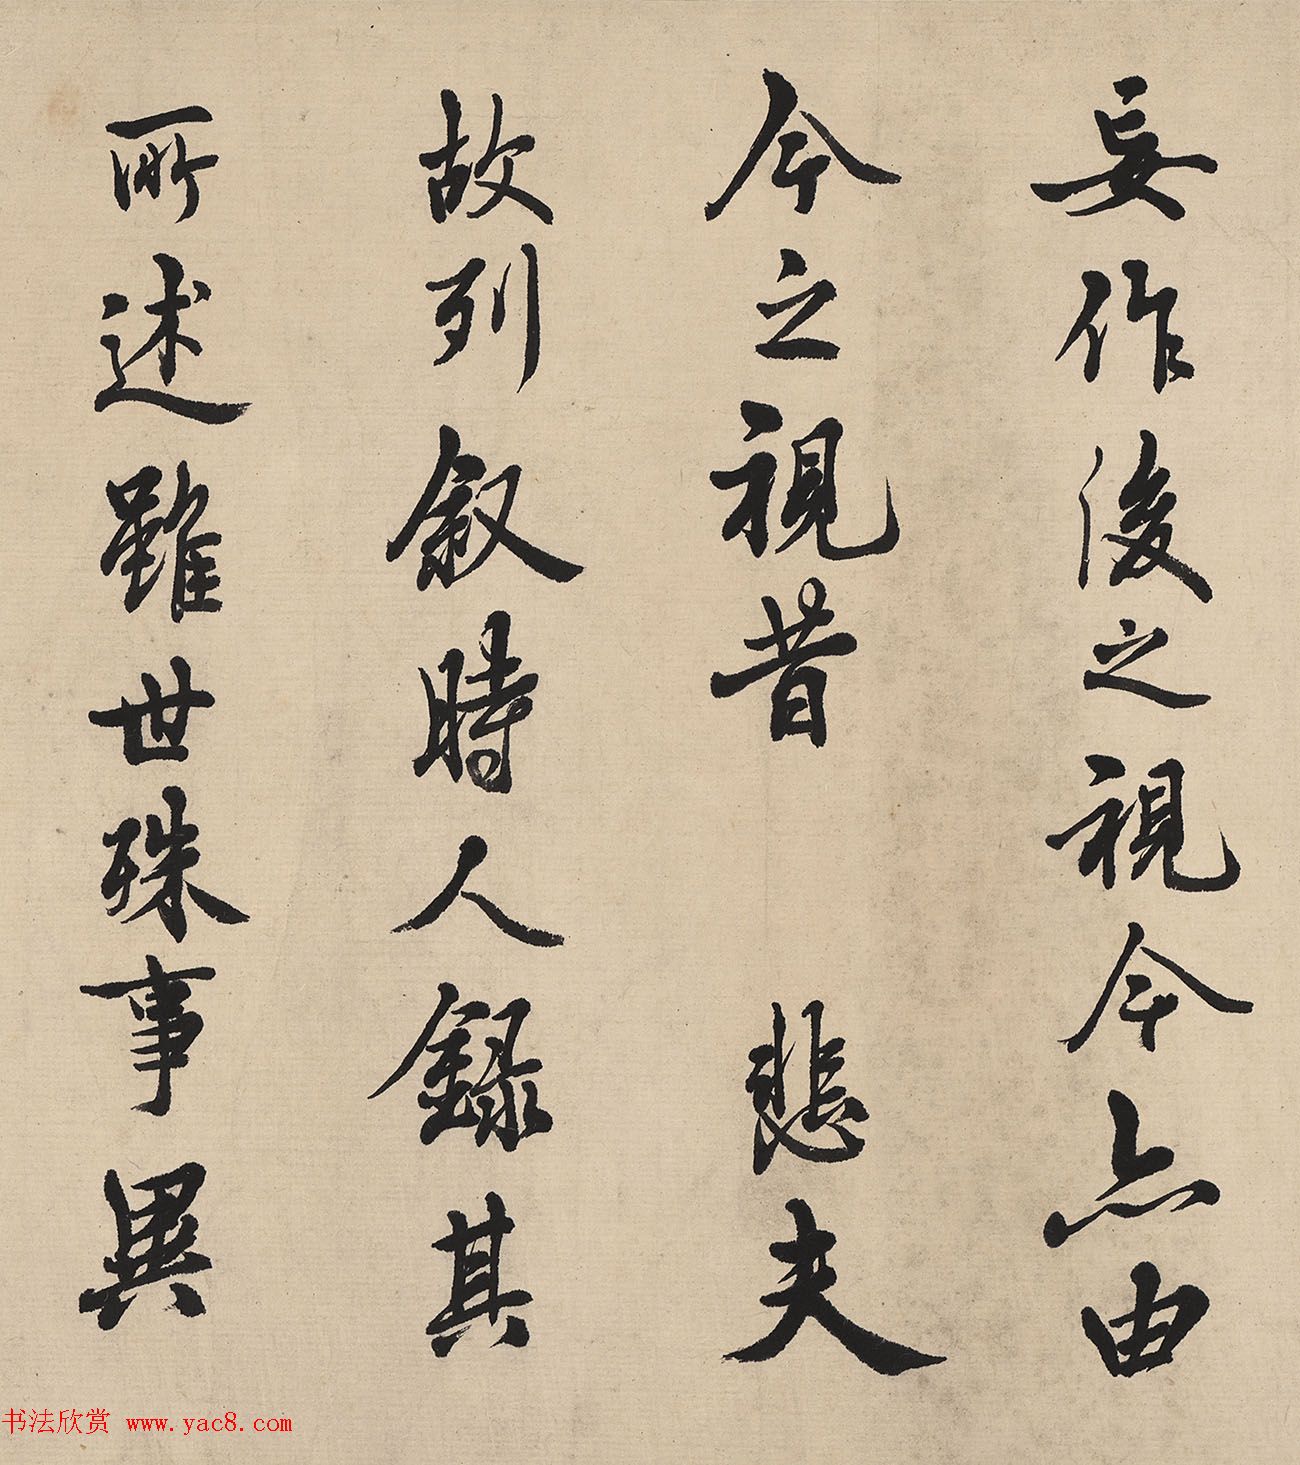 妄作後之視今亦由
今之視昔 悲夫
故列叙時人錄其
所述雖世殊事異
书法欣赏 www.yac8.com